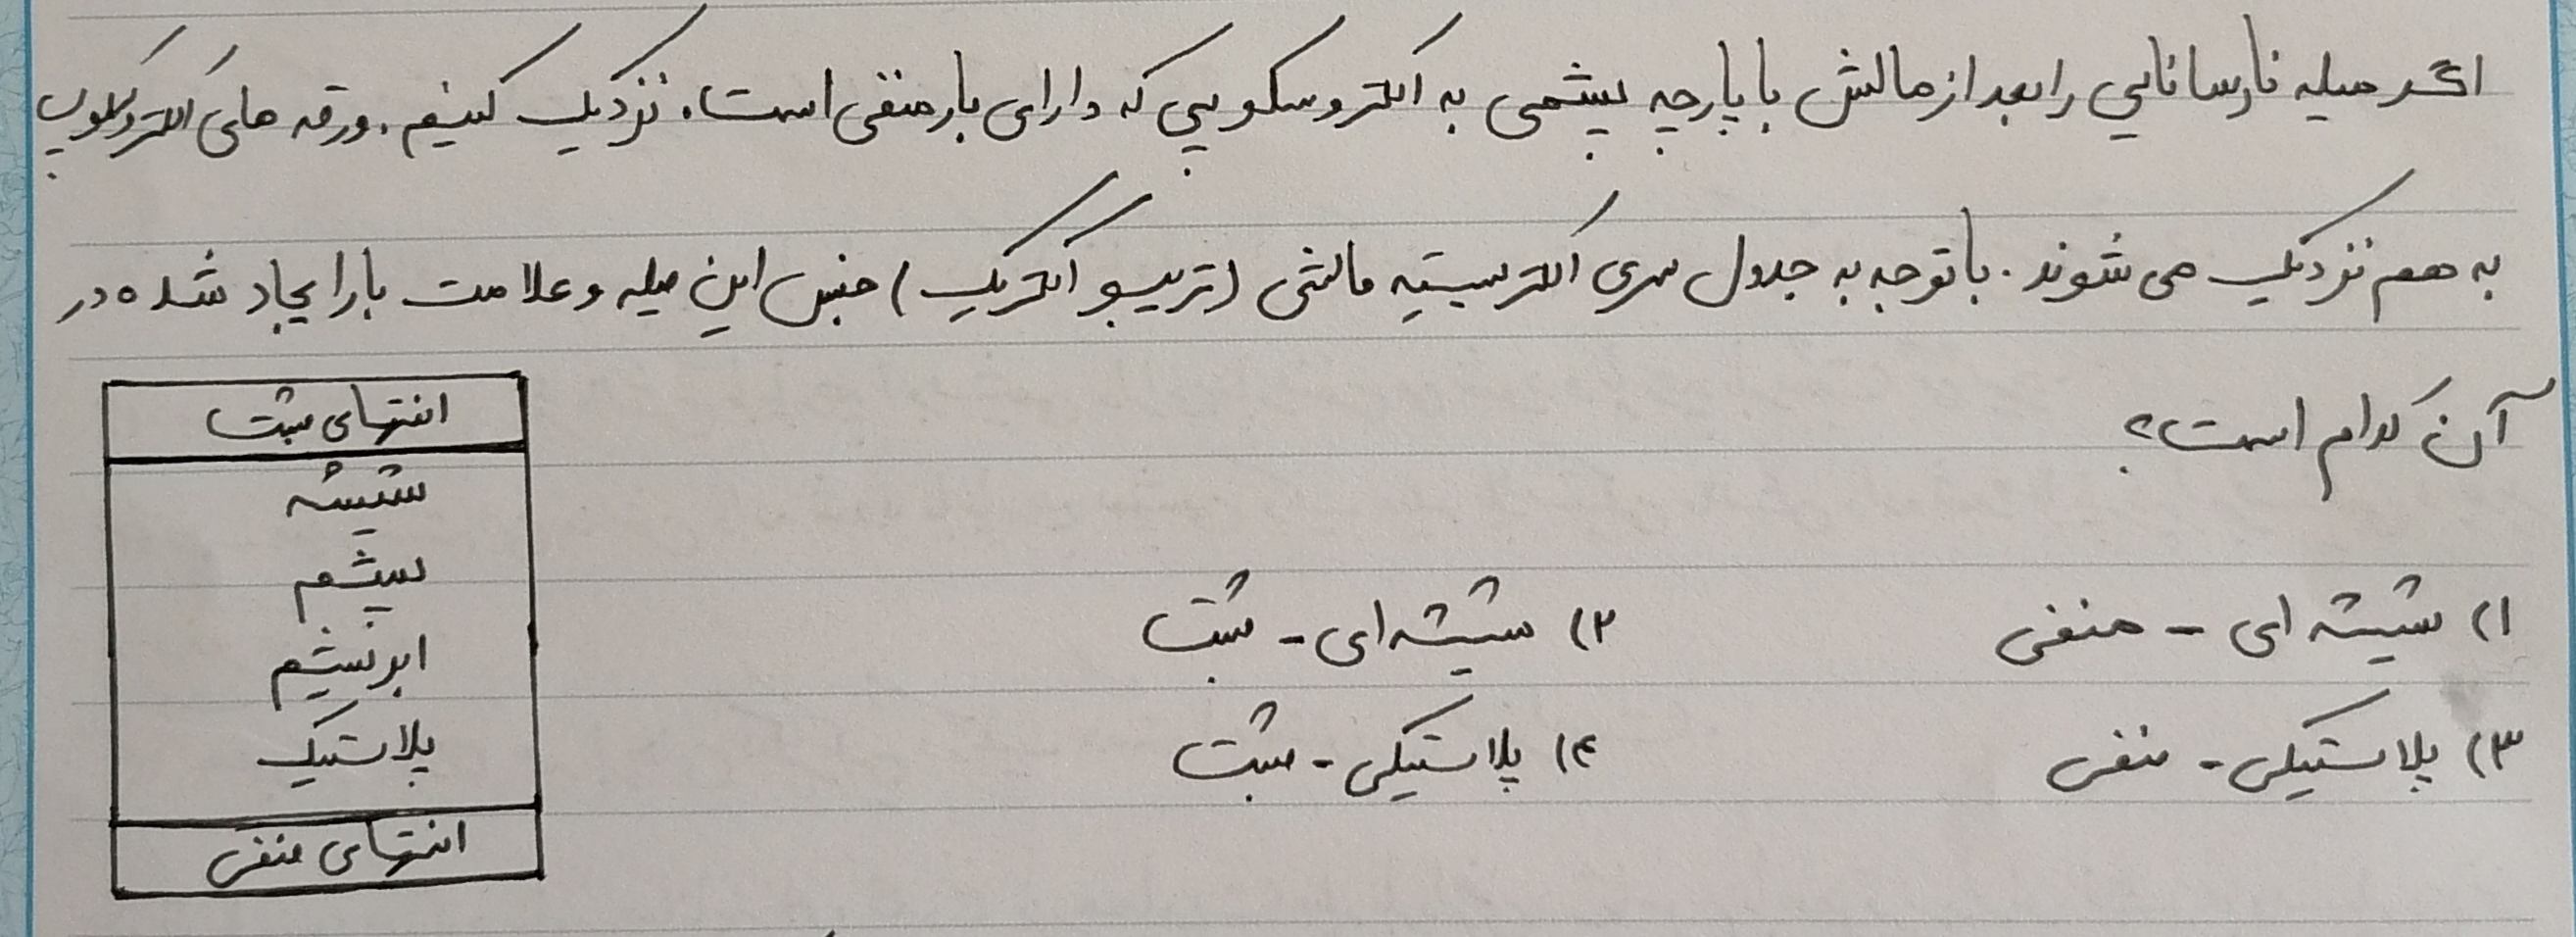 اگر میله نارسانایی را بعد از مالش با پارچه پشمی به الکتروسکوپی که دارای بار منفی است، نزدیک کنیم. ورقه های الکتروسکوپ
به هم نزدیک می شوند. با توجه به جدول سری الکتریسیته مالشی (تریبو الکتریک) جنس این میله و علامت بار ایجاد شده در
آن کدام است؟
۱) شیشه ای - منفی
۲) شیشه ای - مثبت
۳) پلاستیکی - منفی
۴) پلاستیکی - مثبت
انتهای مثبت
شیشه
پشم
ابریشم
پلاستیک
انتهای منفی